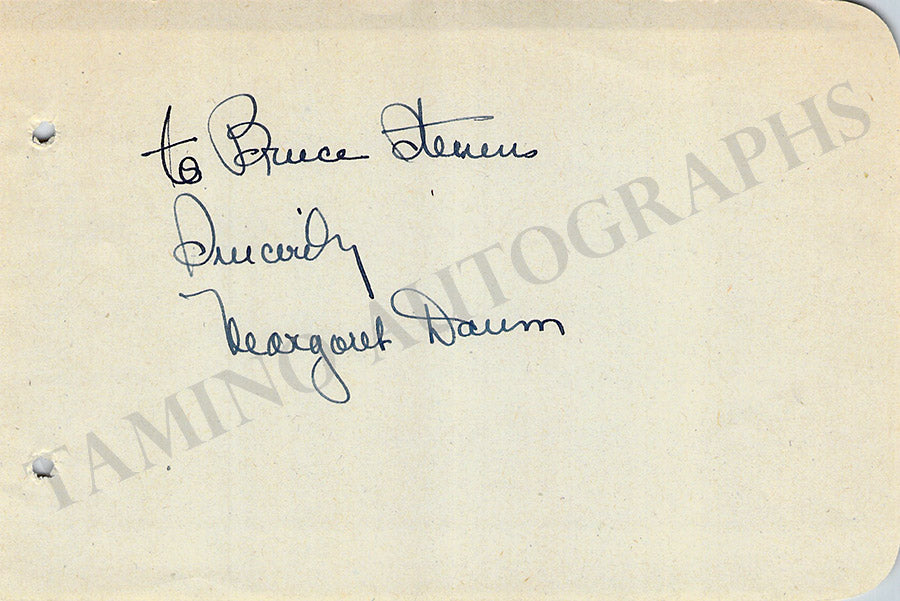 to Bruce Stevens
Sincerely
Margaret Daum
TAMINO AUTOGRAPHS